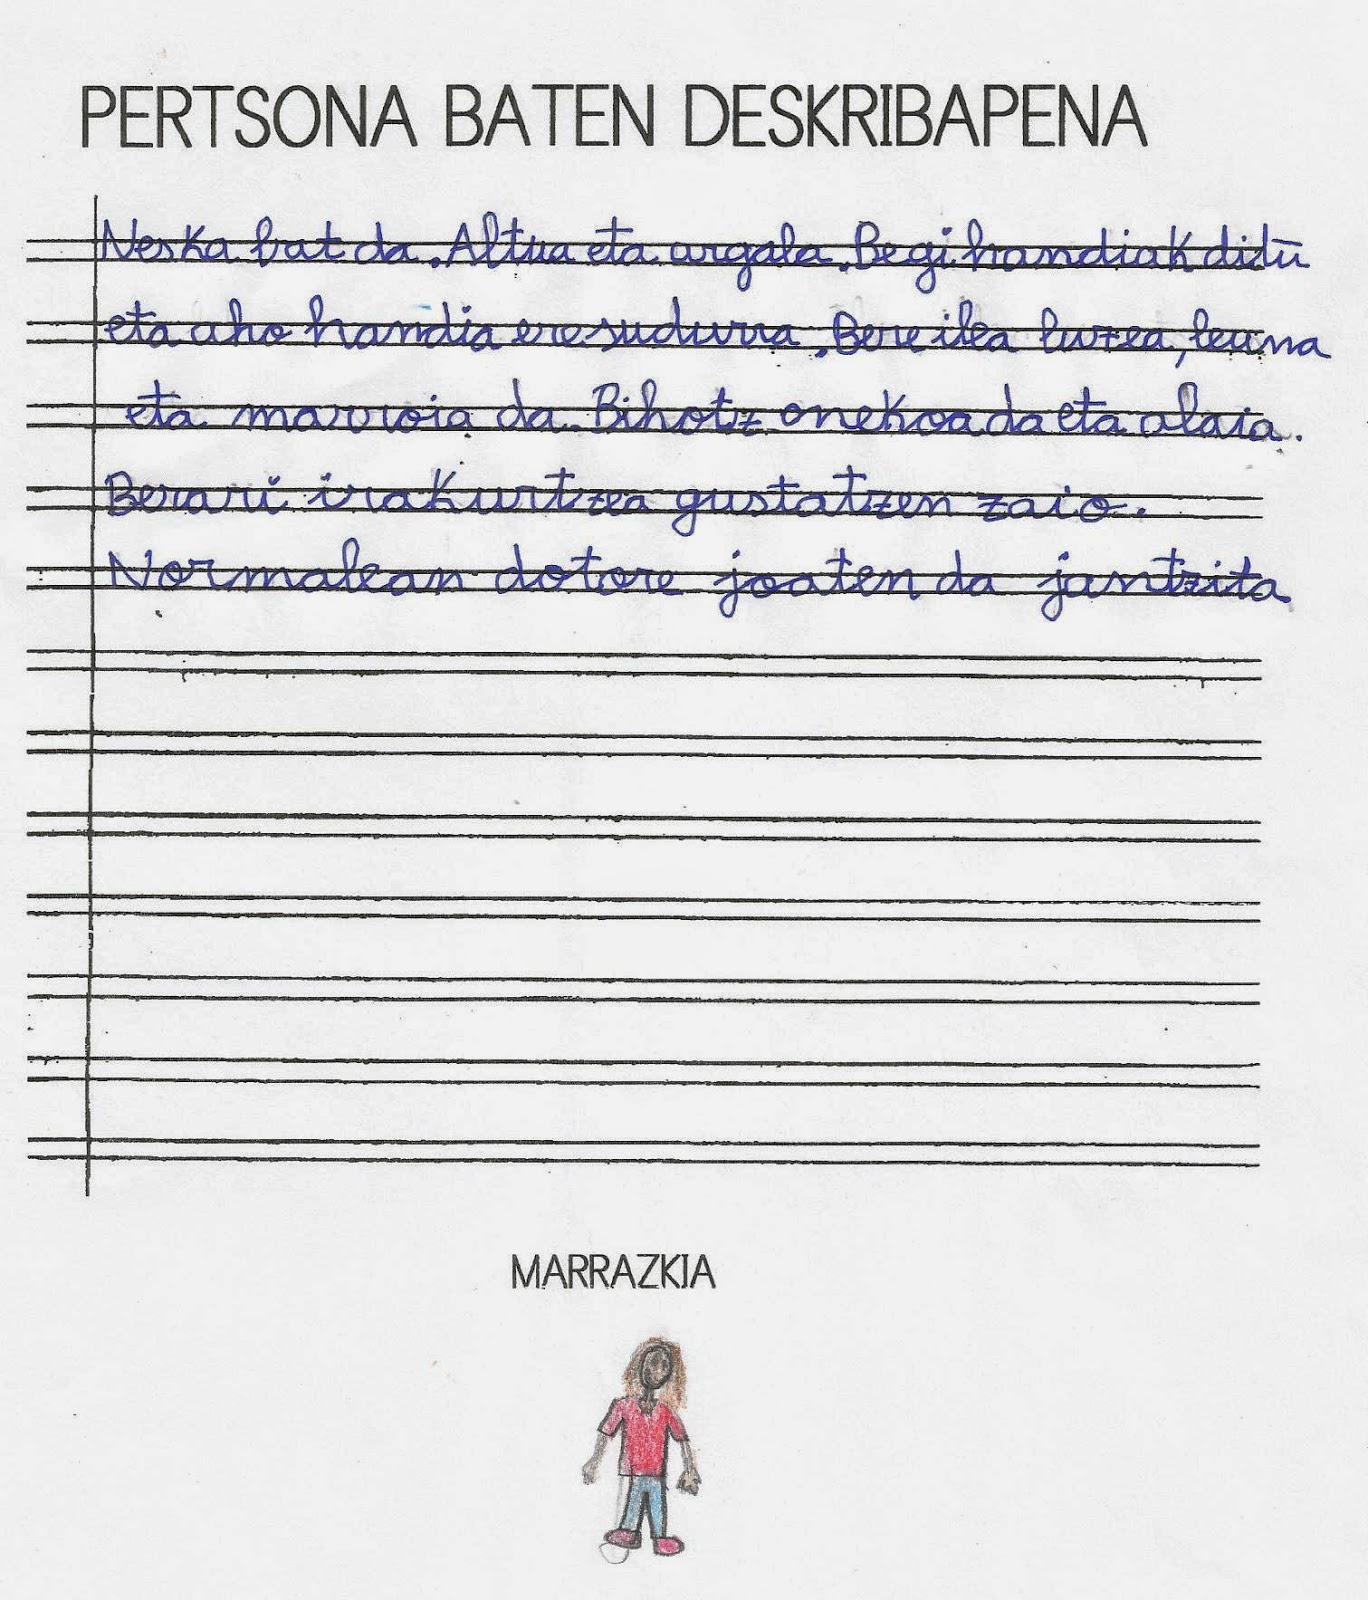 PERTSONA BATEN DESKRIBAPENA
Neska bat da. Altua eta argala. Begi handiak ditu
eta aho handia ere sudurra. Bere ilea luzea, leuna
eta marroia da. Bihotz onekoa da eta alaia.
Berari irakurtzea gustatzen zaio.
Normalean dotore joaten da jantzita
MARRAZKIA